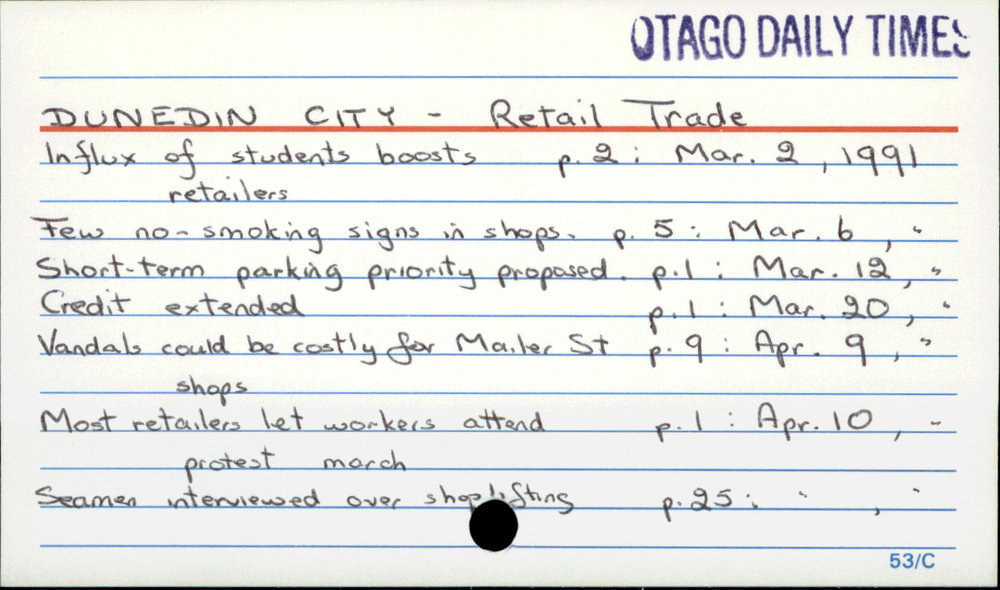 OTAGO DAILY TIMES
DUNEDIN CITY - Retail Trade
Influx of students boosts p. 2 : Mar. 2, 1991
retailers
Few no-smoking signs in shops. p. 5 : Mar. 6, "
Short-term parking priority proposed. p.1 : Mar. 12, "
Credit extended p.1 : Mar. 20, "
Vandals could be costly for Mailer St p. 9 : Apr. 9, "
shops
Most retailers let workers attend p. 1 : Apr. 10, "
protest march
Seamen interviewed over shoplifting p. 25 : " , "
53/C